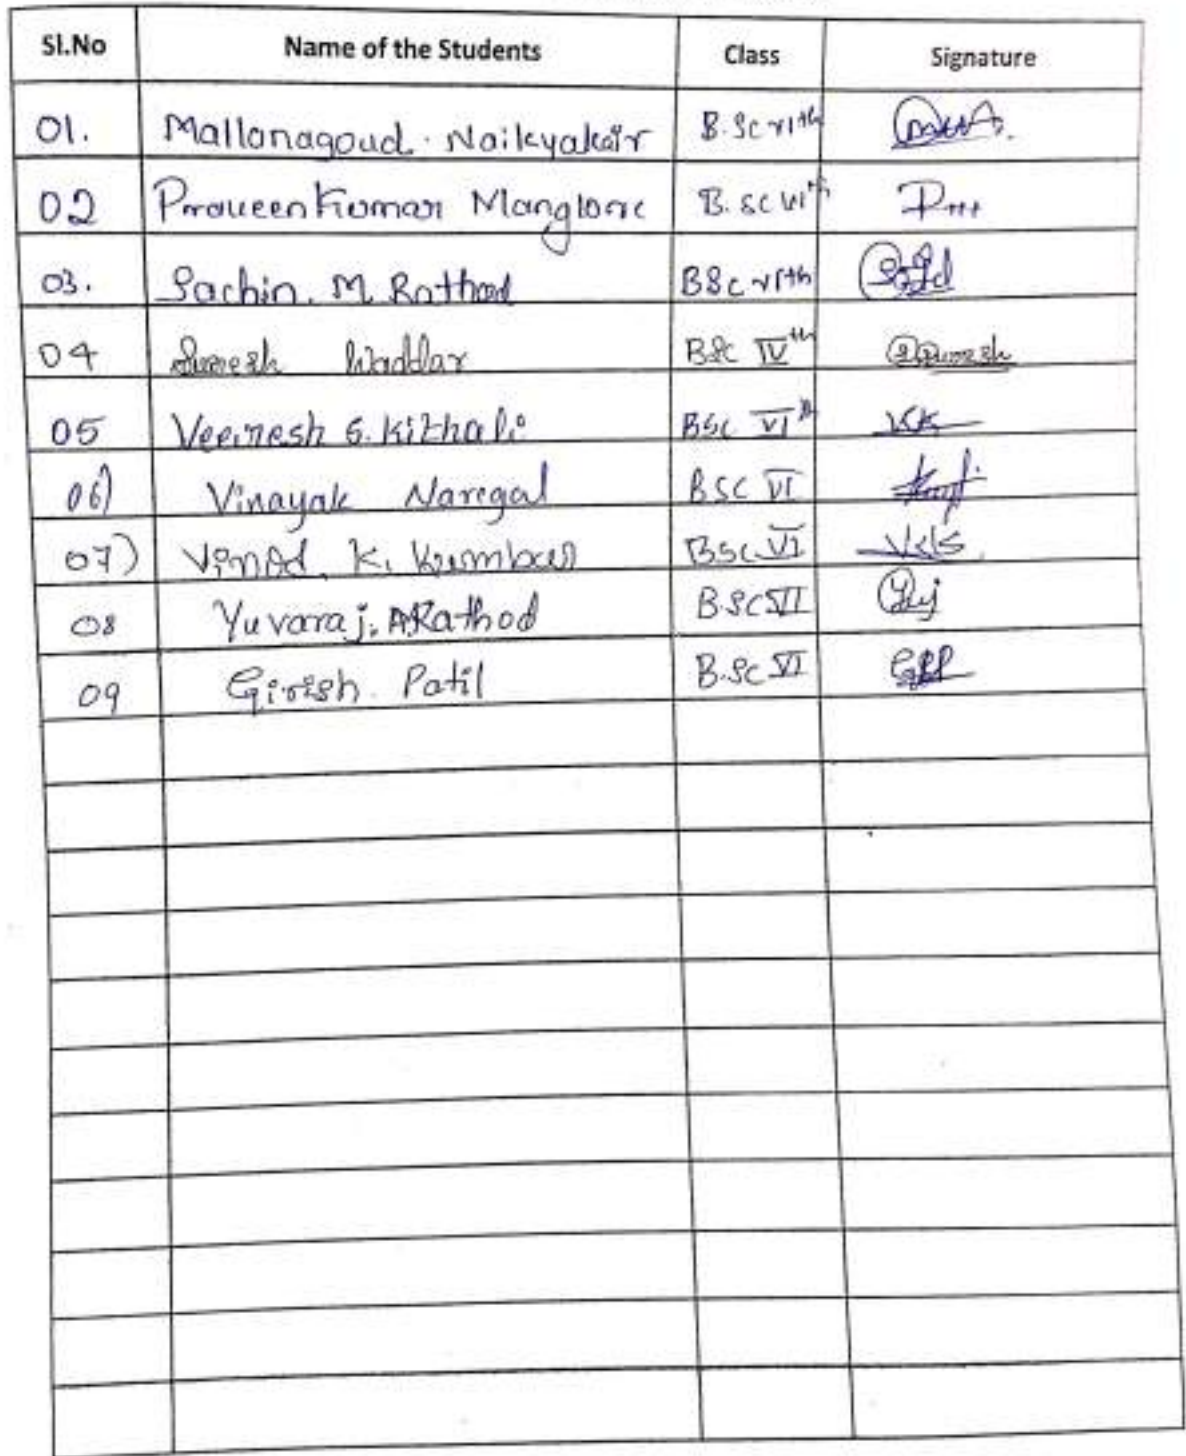 Sl.No Name of the Students Class Signature
01. Mallanagoud. Naikyakar B.Sc VIth
02 Praveen Kumar Manglore B.Sc VIth
03. Sachin. M. Rathod BSc VIth
04 Sumesh Waddar BSc IVth
05 Veeresh S. Kithali BSc VIth VK
06) Vinayak Naregal BSC VI
07) Vinod. K. Kumbar BSC VI VKK
08 Yuvaraj. A Rathod B.SC VI
09 Girish. Patil B.Sc VI